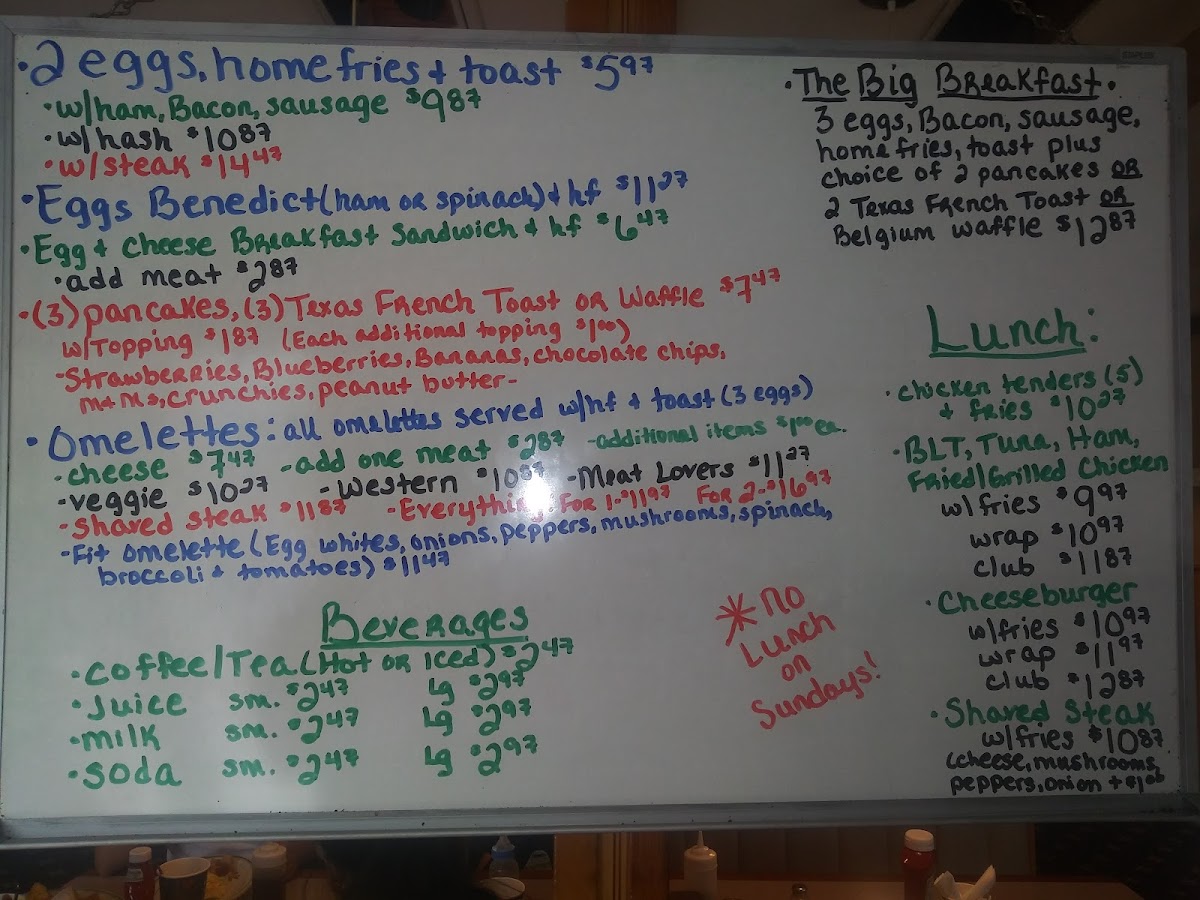 ·2 eggs, home fries + toast $5.97
·w/ham, Bacon, sausage $9.87
·w/hash $10.87
·w/steak $14.47
·Eggs Benedict (ham or spinach) + hf $11.27
·Egg + cheese Breakfast Sandwich + hf $6.47
·add meat $2.87
·(3) pancakes, (3) Texas French Toast or Waffle $7.47
w/Topping $1.87 (Each additional topping $1.00)
-Strawberries, Blueberries, Bananas, chocolate chips,
m+ms, crunchies, peanut butter-
·Omelettes: all omelettes served w/hf + toast (3 eggs)
-cheese $7.47 -add one meat $2.87 -additional items $1.00 ea.
-veggie $10.27 -Western $10.87 -Meat Lovers $11.27
-Shaved Steak $11.87 -Everything: For 1-$11.97 For 2-$16.97
-Fit omelette (Egg whites, onions, peppers, mushrooms, spinach,
broccoli + tomatoes) $11.47
Beverages
·coffee/Tea (Hot or iced) $2.47
·Juice sm. $2.47 Lg $2.97
·milk sm. $2.47 Lg $2.97
·soda sm. $2.47 Lg $2.97
·The Big Breakfast·
3 eggs, Bacon, sausage,
home fries, toast plus
choice of 2 pancakes OR
2 Texas French Toast OR
Belgium waffle $12.87
Lunch:
·chicken tenders (5)
+ fries $10.27
·BLT, Tuna, Ham,
Fried/Grilled Chicken
w/fries $9.97
wrap $10.97
club $11.87
·Cheeseburger
w/fries $10.97
wrap $11.97
club $12.87
·Shaved Steak
w/fries $10.87
(cheese, mushrooms,
peppers, onion + $1.00
*no
Lunch
on
Sundays!